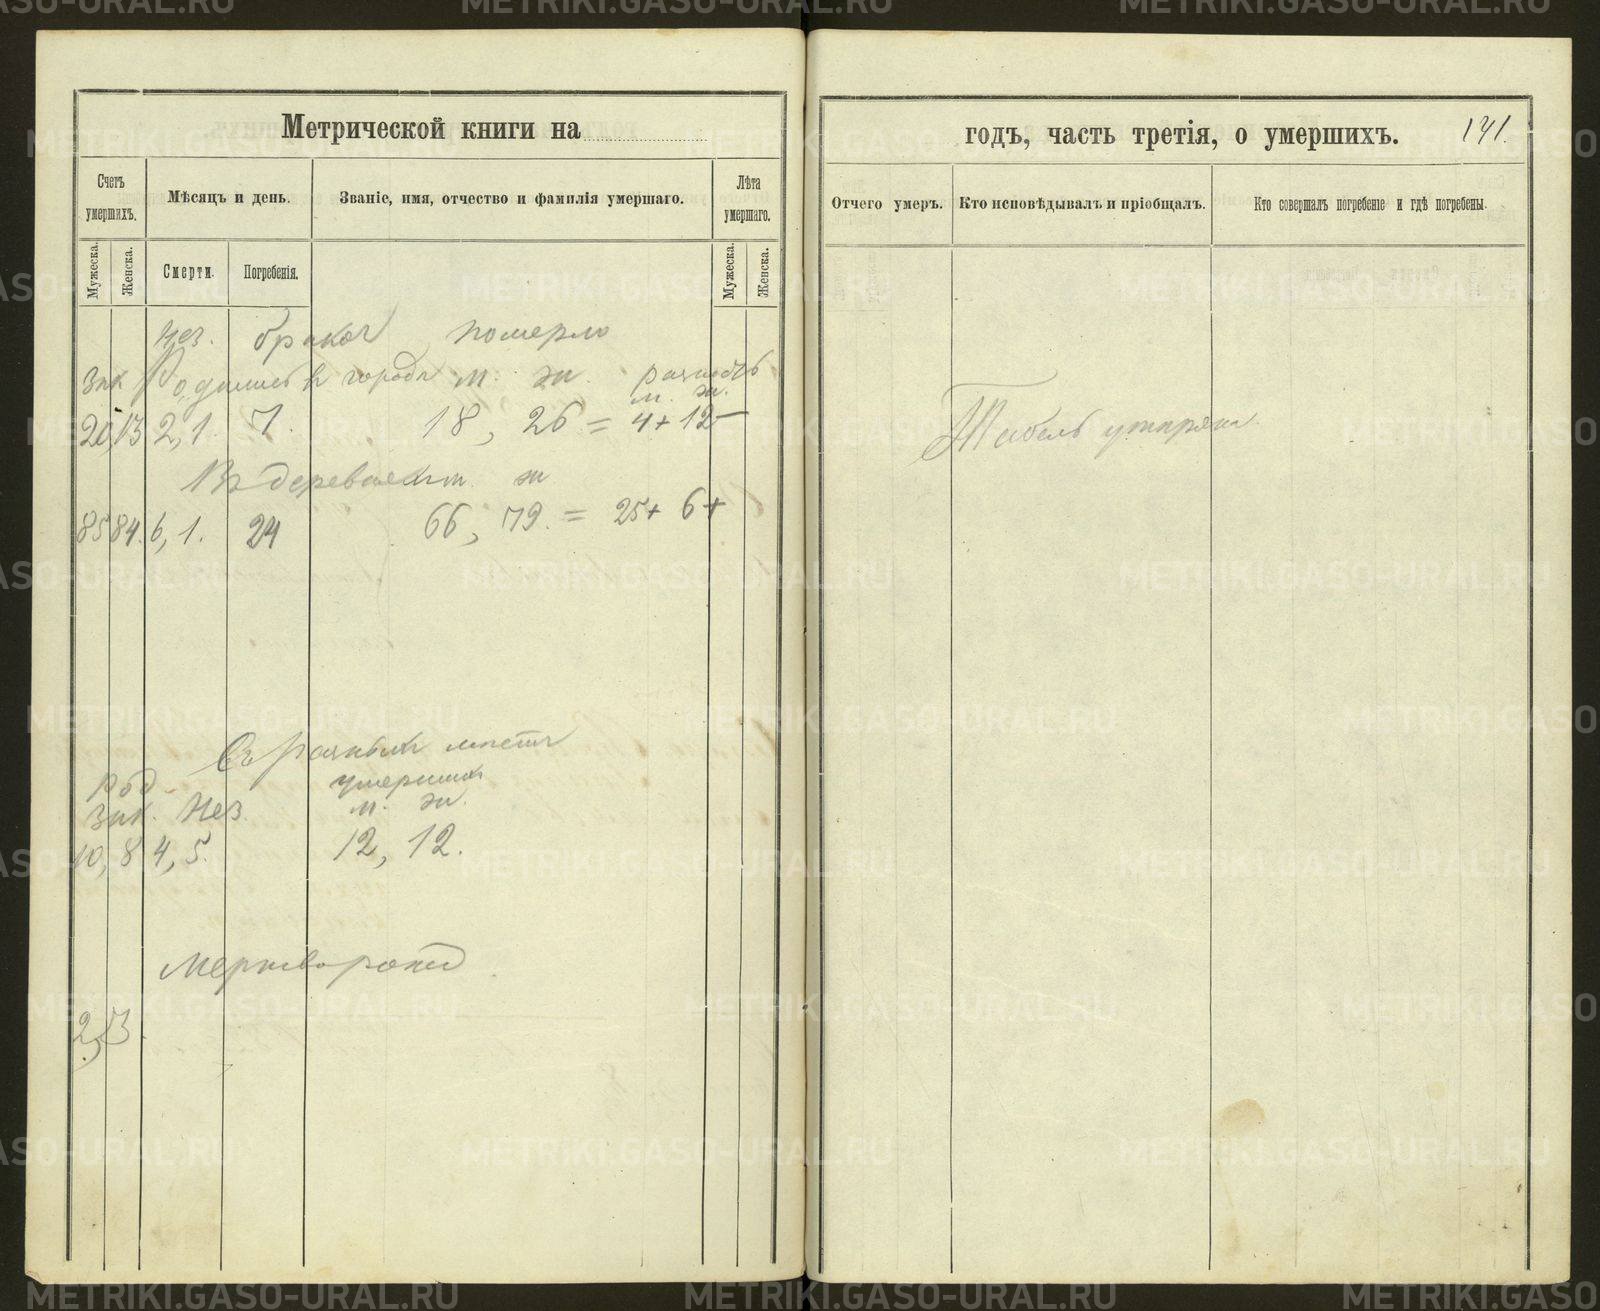 Метрической книги на
Счетъ умершихъ.
Мѣсяцъ и день.
Званіе, имя, отчество и фамилія умершаго.
Лѣта умершаго.
Мужеска.
Женска.
Смерти.
Погребенія.
Мужеска.
Женска.
Нез. браков померло
Зак Родились въ городѣ м. ж. разность
м. ж.
20, 13 2, 1. 7. 18, 26 = 4+ 12-
Въ деревнях м. ж
85 84. 6, 1. 24 66, 79. = 25+ 6+
Съ разных мѣстъ
Род умерших
Зак. Нез. м. ж.
10, 8 4, 5. 12, 12.
Мертворожд
2, 3.
годъ, часть третія, о умершихъ. 141.
Отчего умеръ.
Кто исповѣдывалъ и пріобщалъ.
Кто совершалъ погребеніе и гдѣ погребены.
Табель
METRIKI.GASO-URAL.RU